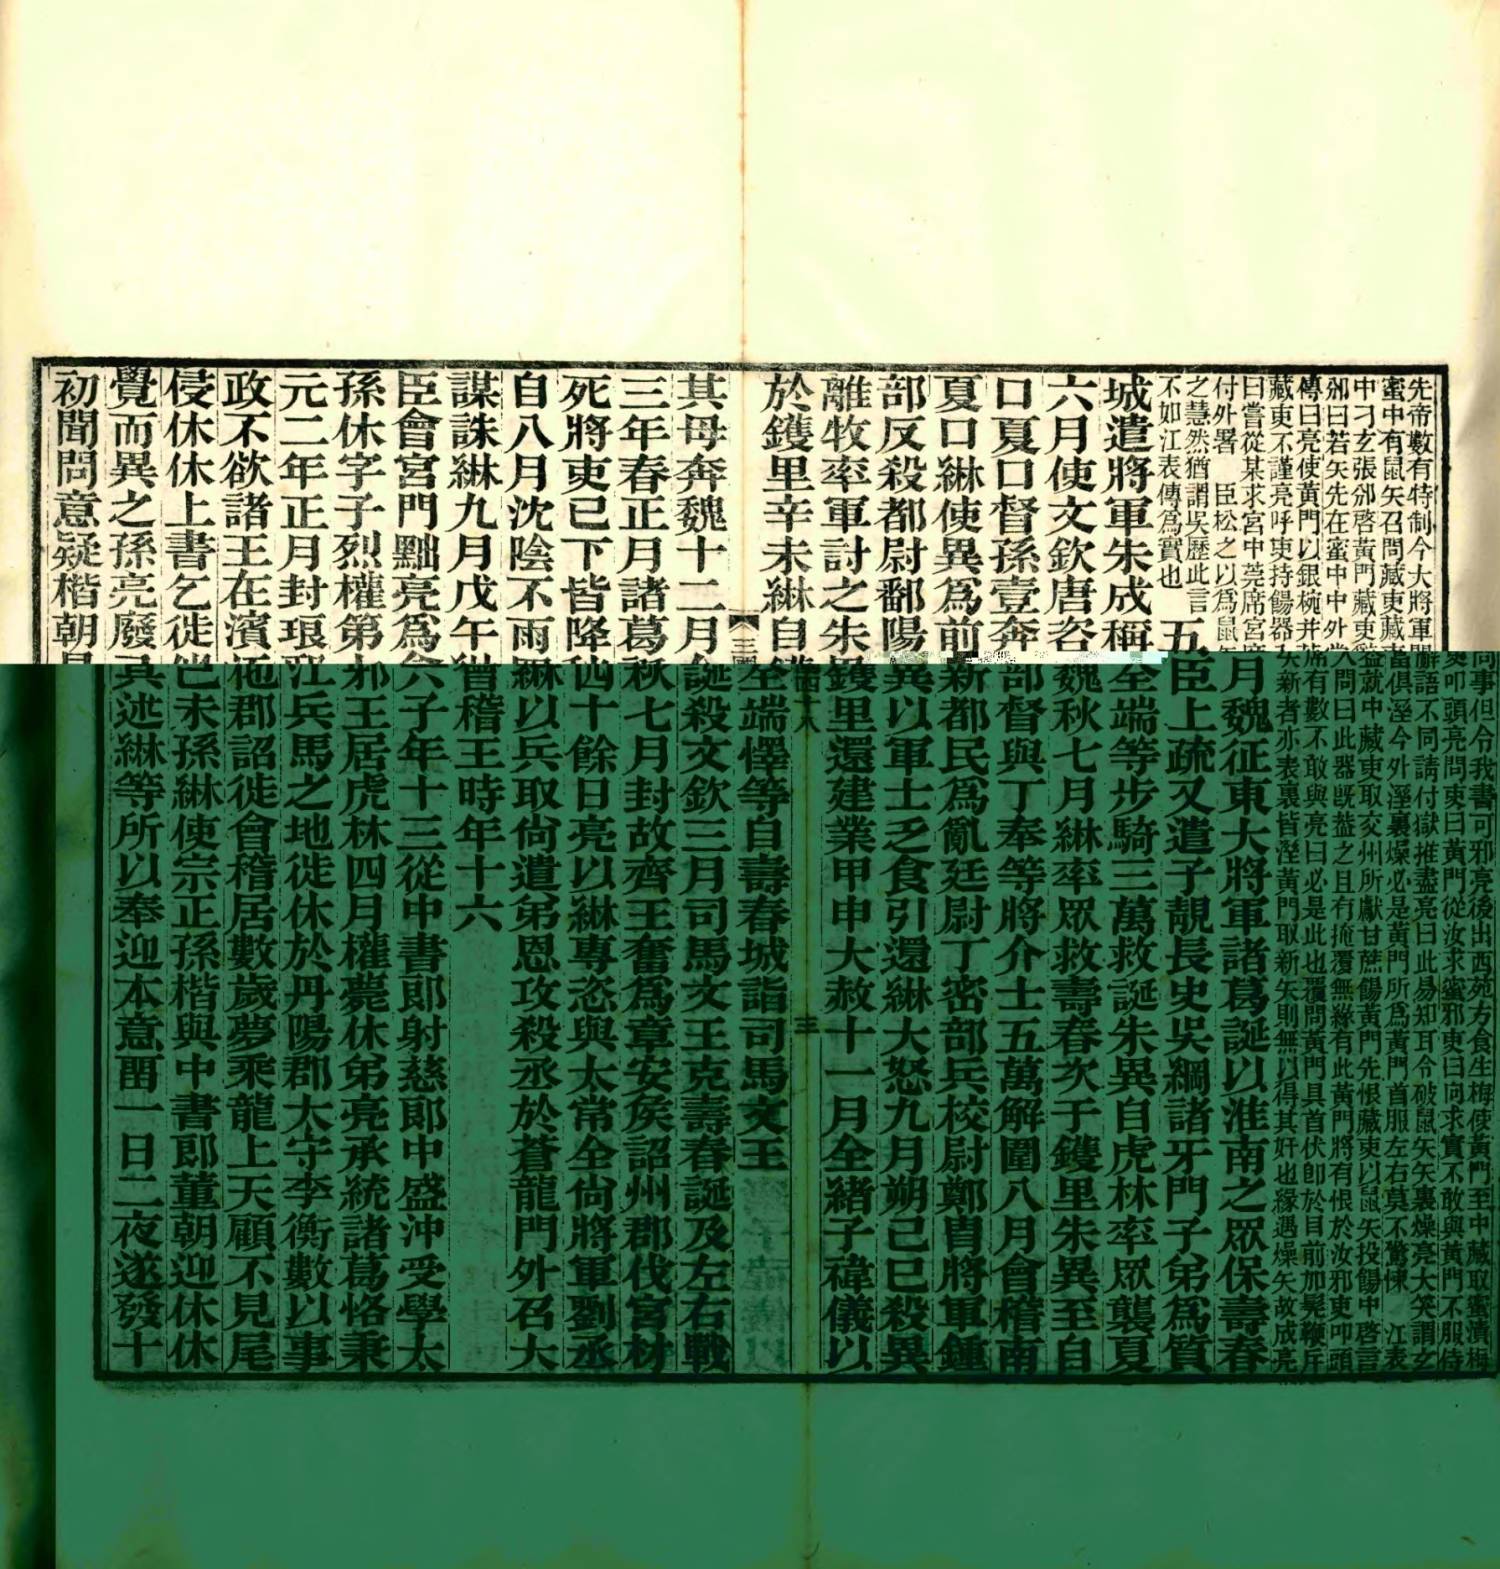 先帝數有特制今大將軍問事但令我書可邪亮後出西苑方食生梅使黃門至中藏取蜜漬梅
蜜中有鼠矢召問藏吏藏吏叩頭亮問吏曰黃門從汝求蜜邪吏曰向求實不敢與黃門不服侍
中刁玄張邠啓黃門藏吏辭語不同請付獄推盡亮曰此易知耳令破鼠矢矢裏燥亮大笑謂玄
邠曰若矢先在蜜中中外當俱溼今外溼裏燥必是黃門所爲黃門首服左右莫不驚悚　江表
傳曰亮使黃門以銀椀并蓋就中藏吏取交州所獻甘蔗餳黃門先恨藏吏以鼠矢投餳中啓言
藏吏不謹亮呼吏持餳器入問曰此器既蓋之且有掩覆無緣有此黃門將有恨於汝邪吏叩頭
曰嘗從某求宮中莞席宮席有數不敢與亮曰必是此也覆問黃門具首伏卽於目前加髠鞭斥
付外署　臣松之以爲鼠矢新者亦表裏皆溼黃門取新矢則無以得其奸也緣遇燥矢故成亮
之慧然猶謂吳歷此言
不如江表傳爲實也
五月魏征東大將軍諸葛誕以淮南之眾保壽春
城遣將軍朱成稱臣上疏又遣子靚長史吳綱諸牙門子弟爲質
六月使文欽唐咨全端等步騎三萬救誕朱異自虎林率眾襲夏
口夏口督孫壹奔魏秋七月綝率眾救壽春次于鑊里朱異至自
夏口綝使異爲前部督與丁奉等將介士五萬解圍八月會稽南
部反殺都尉鄱陽新都民爲亂廷尉丁密步兵校尉鄭冑將軍鍾
離牧率軍討之朱異以軍士乏食引還綝大怒九月朔己巳殺異
於鑊里辛未綝自鑊里還建業甲申大赦十一月全緒子禕儀以
三國志四十八　三
其母奔魏十二月全端懌等自壽春城詣司馬文王
三年春正月諸葛誕殺文欽三月司馬文王克壽春誕及左右戰
死將吏已下皆降秋七月封故齊王奮爲章安矦詔州郡伐宮材
自八月沈陰不雨四十餘日亮以綝專恣與太常全尚將軍劉丞
謀誅綝九月戊午綝以兵取尚遣弟恩攻殺丞於蒼龍門外召大
臣會宮門黜亮爲會稽王時年十六
孫休字子烈權第六子年十三從中書郎射慈郎中盛沖受學太
元二年正月封琅邪王居虎林四月權薨休弟亮承統諸葛恪秉
政不欲諸王在濱江兵馬之地徙休於丹陽郡太守李衡數以事
侵休休上書乞徙他郡詔徙會稽居數歲夢乘龍上天顧不見尾
覺而異之孫亮廢己未孫綝使宗正孫楷與中書郎董朝迎休休
初聞問意疑楷朝具述綝等所以奉迎本意畱一日二夜遂發十